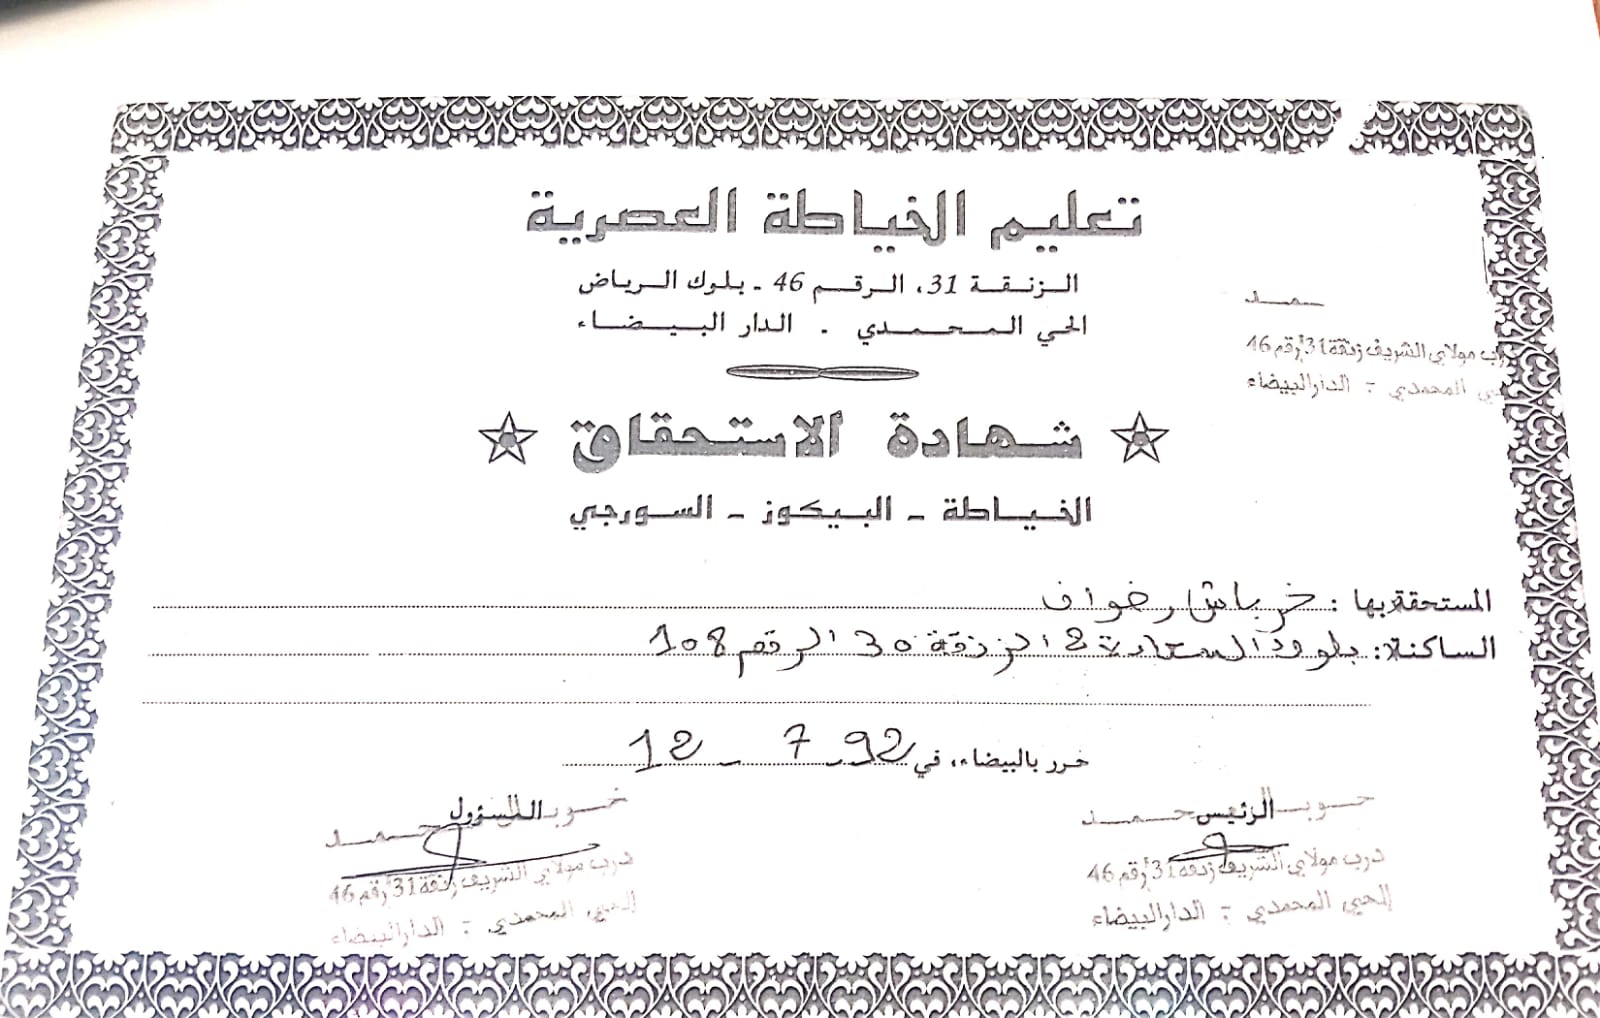 تعليم الخياطة العصرية
الزنقة 31، الرقم 46 - بلوك الرياض
الحي المحمدي . الدار البيضاء
حمد
درب مولاي الشريف زنقة 31 رقم 46
الحي المحمدي - الدار البيضاء
شهادة الاستحقاق
الخياطة - البيكوز - السورجي
المستحقة بها : خرباش رضوان
الساكنة : بلوك السعادة 8 الزنقة 30 الرقم 108
حرر بالبيضاء، في 12 - 7 - 92
الرئيس
حمد
درب مولاي الشريف زنقة 31 رقم 46
الحي المحمدي - الدار البيضاء
المسؤول
حمد
درب مولاي الشريف زنقة 31 رقم 46
الحي المحمدي - الدار البيضاء